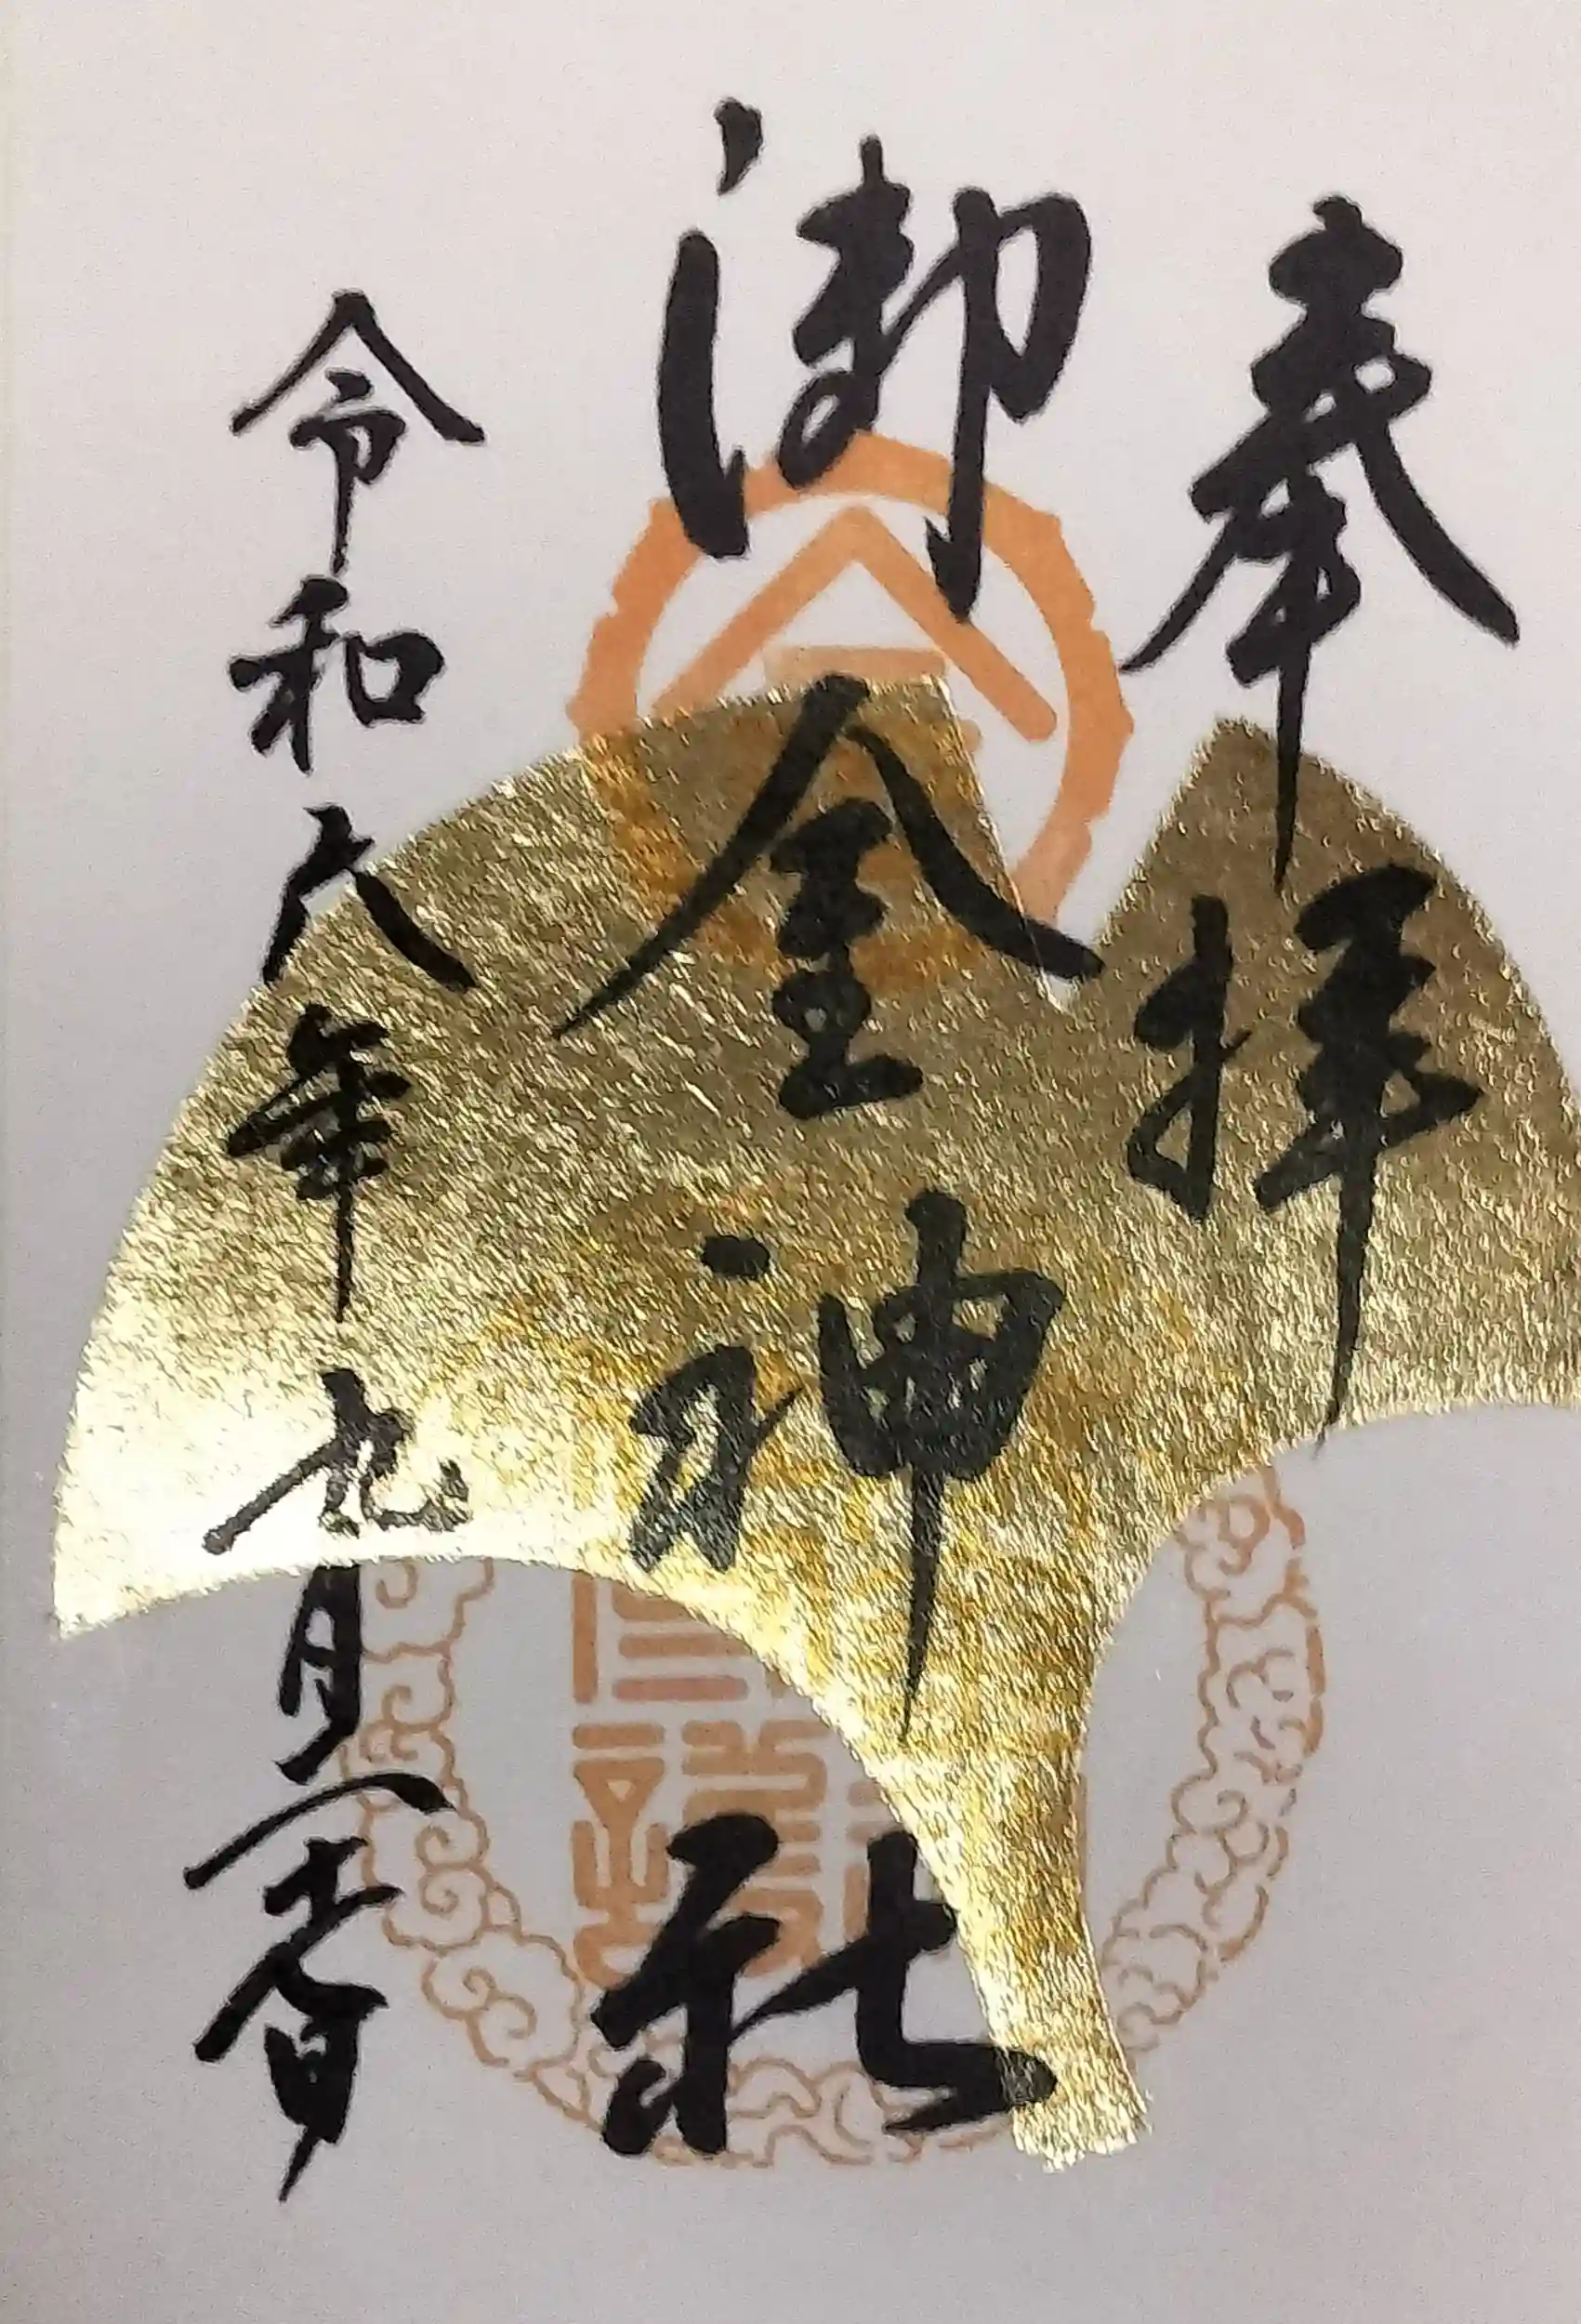 奉拝
御金神社
令和六年九月日